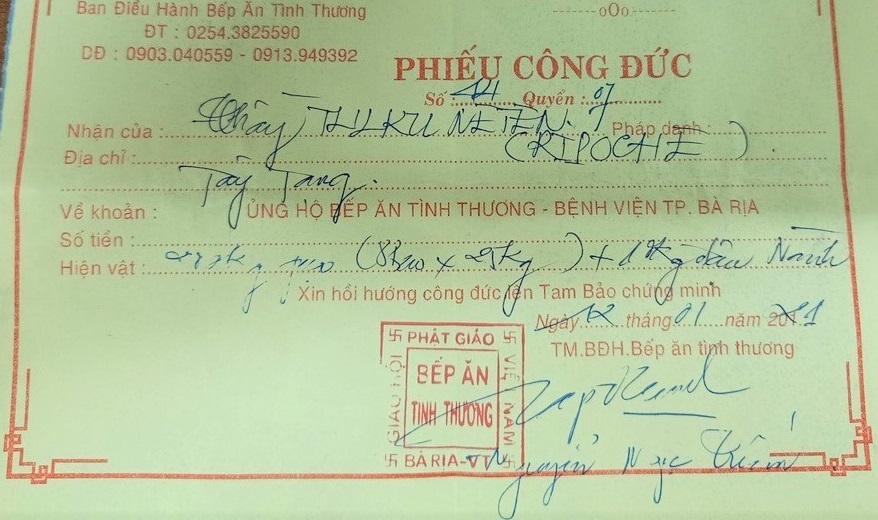 Ban Điều Hành Bếp Ăn Tình Thương
ĐT : 0254.3825590
DĐ : 0903.040559 - 0913.949392
-----oOo-----
PHIẾU CÔNG ĐỨC
Số : 44 Quyển : 07
Nhận của : Thầy Pháp danh :
Địa chỉ : (RIPOCHE)
Tây Tạng.
Về khoản : ỦNG HỘ BẾP ĂN TÌNH THƯƠNG - BỆNH VIỆN TP. BÀ RỊA
Số tiền :
Hiện vật : (8 bao x 25kg) + đậu Nành
Xin hồi hướng công đức lên Tam Bảo chứng minh
Ngày 12 tháng 01 năm 2021
TM.BĐH.Bếp ăn tình thương
PHẬT GIÁO
GIÁO HỘI
BẾP ĂN
TÌNH THƯƠNG
VIỆT NAM
BÀ RỊA-VT
Nguyễn Ngọc